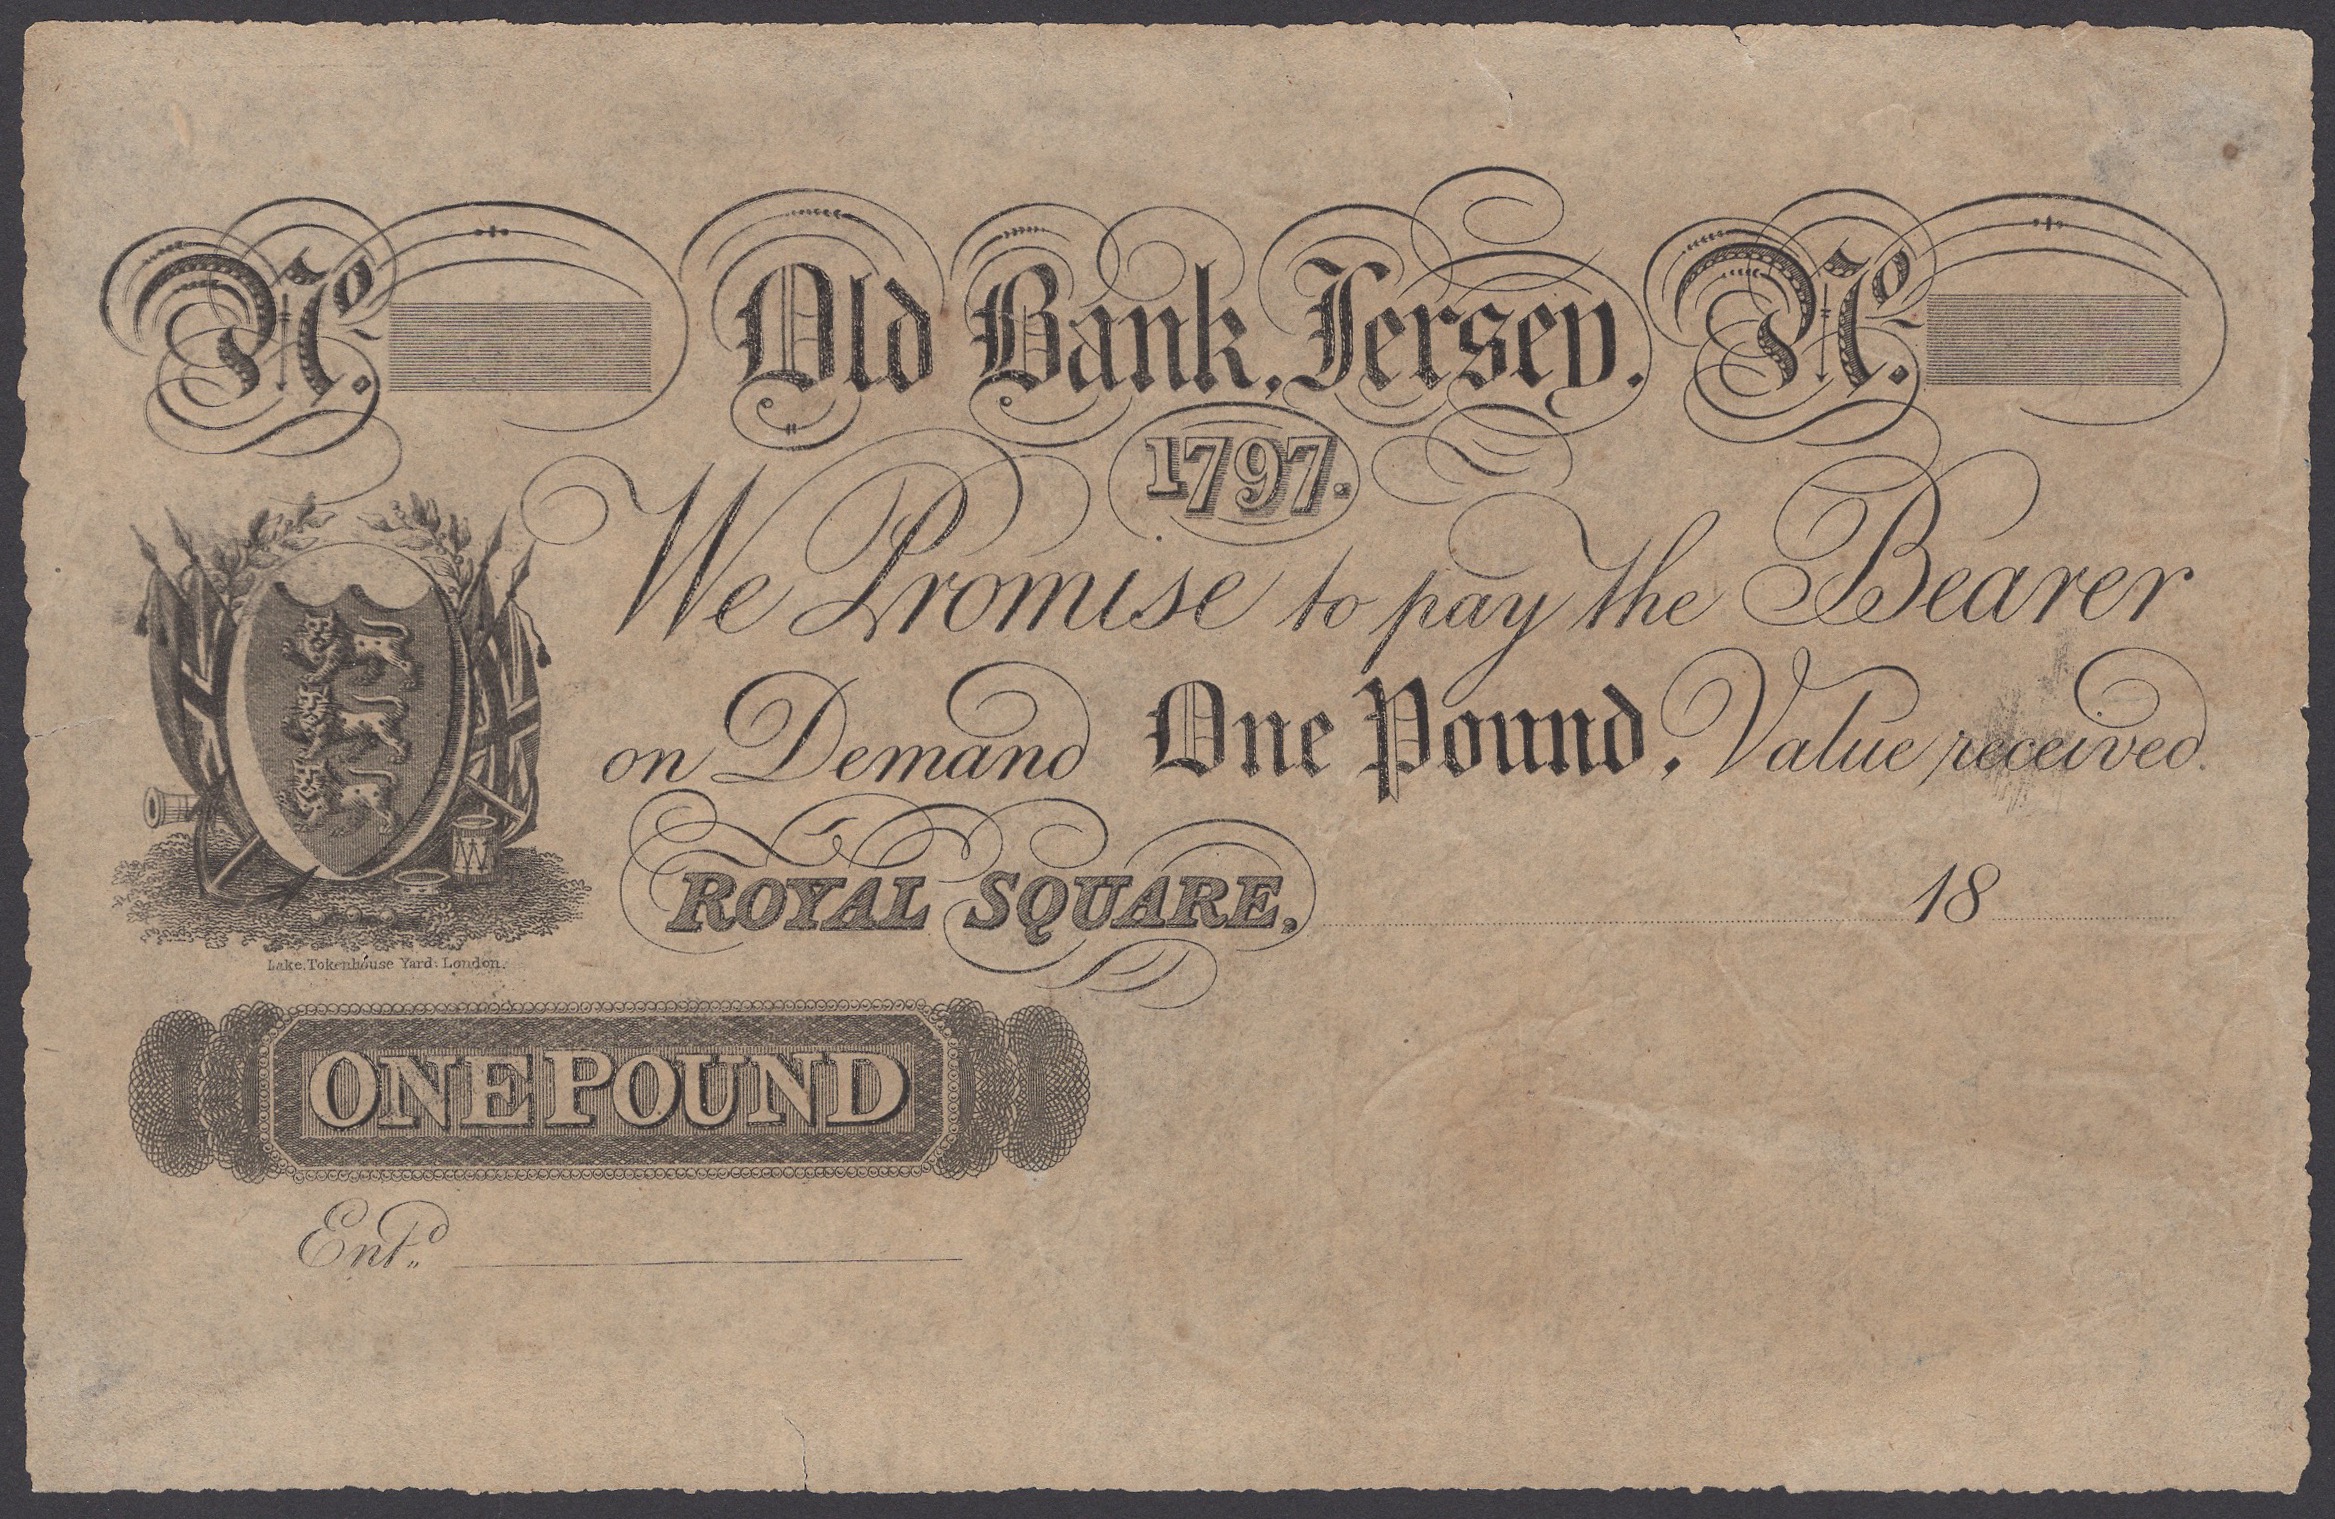 No. Old Bank, Jersey. No.
1797.
We Promise to pay the Bearer
on Demand One Pound, Value received.
ROYAL SQUARE, 18
Lake, Tokenhouse Yard, London.
ONE POUND
Entd.